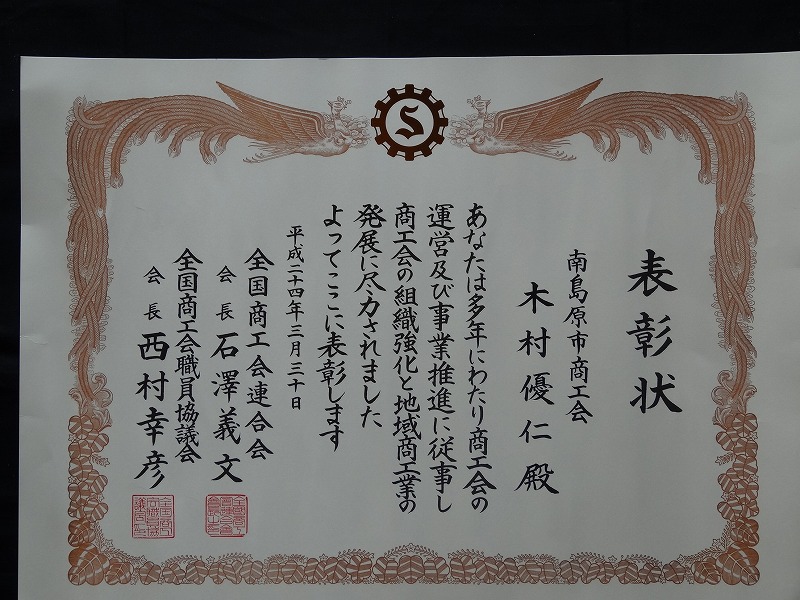 表彰状
南島原市商工会
木村優仁殿
あなたは多年にわたり商工会の
運営及び事業推進に従事し
商工会の組織強化と地域商工業の
発展に尽力されました
よってここに表彰します
平成二十四年三月三十日
全国商工会連合会
会長 石澤義文
全国商工会職員協議会
会長 西村幸彦
S